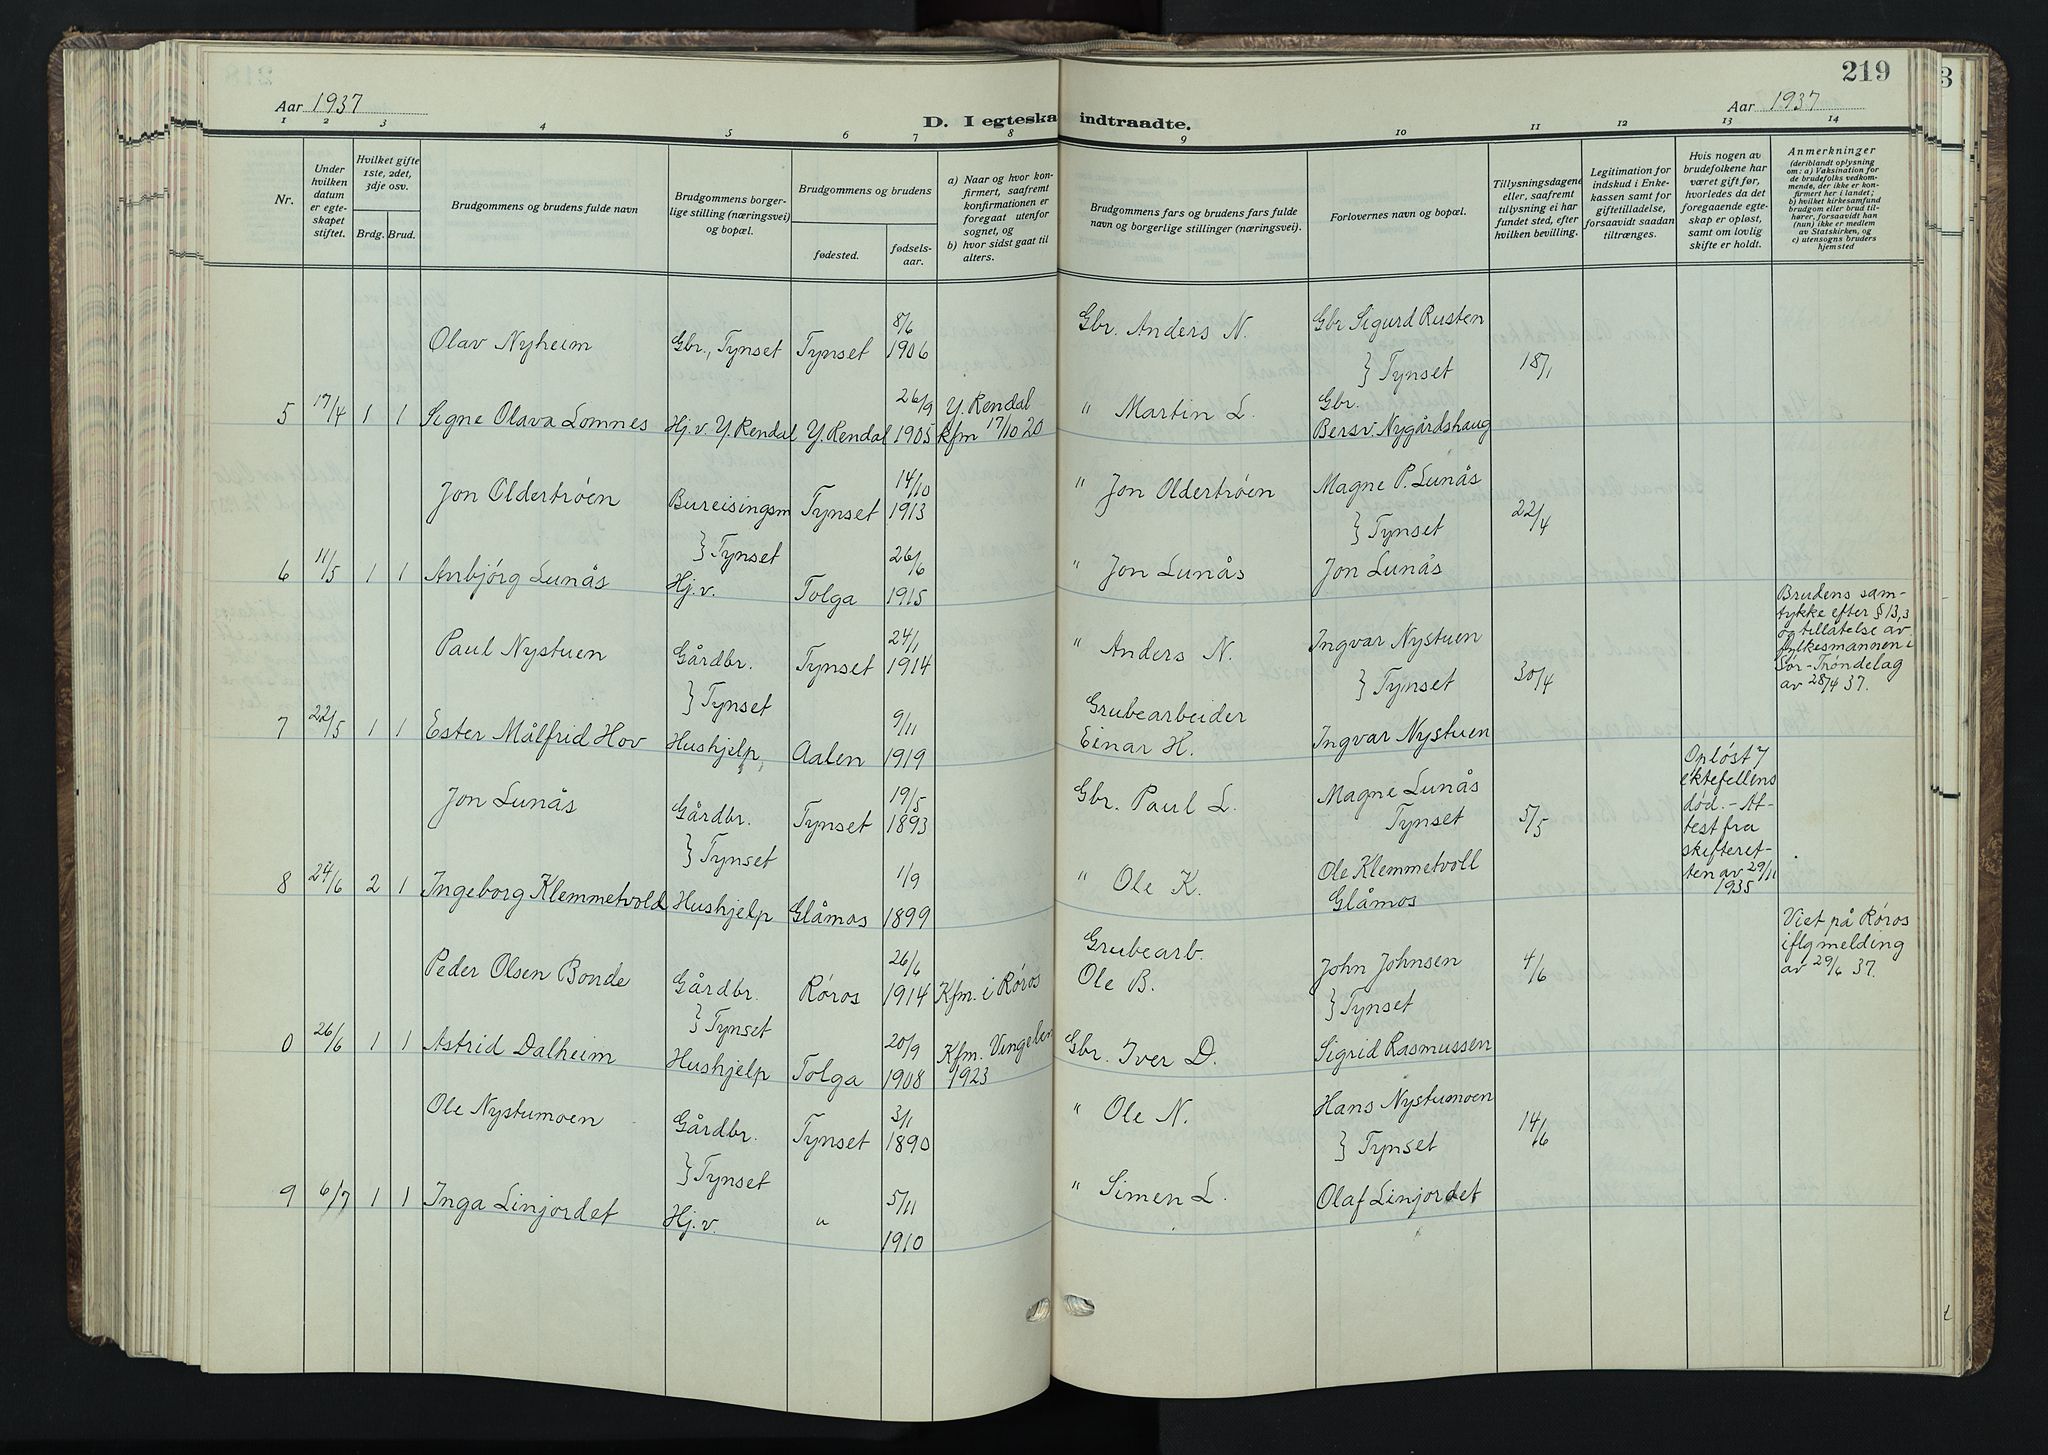 219
Aar 1937
Aar 1937
D. I egteska indtraadte.
1 2 3 4 5 6 7 8 9 10 11 12 13 14
Nr.
Under hvilken datum er egteskapet stiftet.
Hvilket gifte 1ste, 2det, 3dje osv.
Brdg. Brud.
Brudgommens og brudens fulde navn
Brudgommens borgerlige stilling (næringsvei) og bopæl.
Brudgommens og brudens
fødested.
fødselsaar.
a) Naar og hvor konfirmert, saafremt konfirmationen er foregaat utenfor sognet, og
b) hvor sidst gaat til alters.
Brudgommens fars og brudens fars fulde navn og borgerlige stillinger (næringsvei).
Forlovernes navn og bopæl.
Tillysningsdagene eller, saafremt tillysning ei har fundet sted, efter hvilken bevilling.
Legitimation for indskud i Enkekassen samt for giftetilladelse, forsaavidt saadan tiltrænges.
Hvis nogen av brudefolkene har været gift før, hvorledes da det foregaaende egteskap er opløst, samt om lovlig skifte er holdt.
Anmerkninger
(deriblandt oplysning om: a) Vaksination for de brudefolks vedkommende, der ikke er konfirmert her i landet; b) hvilket kirkesamfund brudgom eller brud tilhører, forsaavidt han (hun) ikke er medlem av Statskirken, og c) utensogns bruders hjemsted
Olav Nyheim Gbr., Tynset Tynset 8/6 1906 Gbr. Anders N. Gbr Sigurd Rusten
} Tynset 18/1
5 17/4 1 1 Signe Olava Lomnes Hj.v. Y. Rendal Y. Rendal 26/9 1905 Y. Rendal kfm 17/10 20 " Martin L. Gbr. Bersv. Nygårdshaug
Jon Oldertrøen Bureisingsm Tynset 14/10 1913 " Jon Oldertrøen Magne P. Lunås
} Tynset } Tynset 22/4
6 11/5 1 1 Anbjørg Lunås Hj.v. Tolga 26/6 1915 " Jon Lunås Jon Lunås
Paul Nystuen Gårdbr. Tynset 24/1 1914 " Anders N. Ingvar Nystuen
} Tynset } Tynset 30/4
Brudens sam-
tykke efter § 13,3
og tillatelse av
fylkesmannen i
Sør-Trøndelag
av 28/4 37.
7 22/5 1 1 Ester Målfrid Hov Hushjelp, Aalen 9/11 1919 Grubearbeider Einar H. Ingvar Nystuen
Jon Lunås Gårdbr. Tynset 19/5 1893 Gbr. Paul L. Magne Lunås
} Tynset Tynset 5/5
Opløst v
ektefellens
død. - At-
test fra
skifteret-
ten av 29/11
1935
8 24/6 2 1 Ingeborg Klemmetvold Hushjelp Glåmos 1/9 1899 " Ole K. Ole Klemmetvoll Glåmos
Peder Olsen Bonde Gårdbr. Røros 26/6 1914 Kfm. i Røros Grubearb. Ole B. John Johnsen
} Tynset } Tynset 4/6
Viet på Røros
iflg melding
av 29/6 37.
0 26/6 1 1 Astrid Dalheim Hushjelp Tolga 20/9 1908 Kfm. Vingelen 1923 Gbr. Iver D. Sigrid Rasmussen
Ole Nystumoen Gårdbr. Tynset 3/1 1890 " Ole N. Hans Nystumoen
} Tynset } Tynset 14/6
9 6/7 1 1 Inga Linjordet Hj.v. " 5/11 1910 " Simen L. Olaf Linjordet